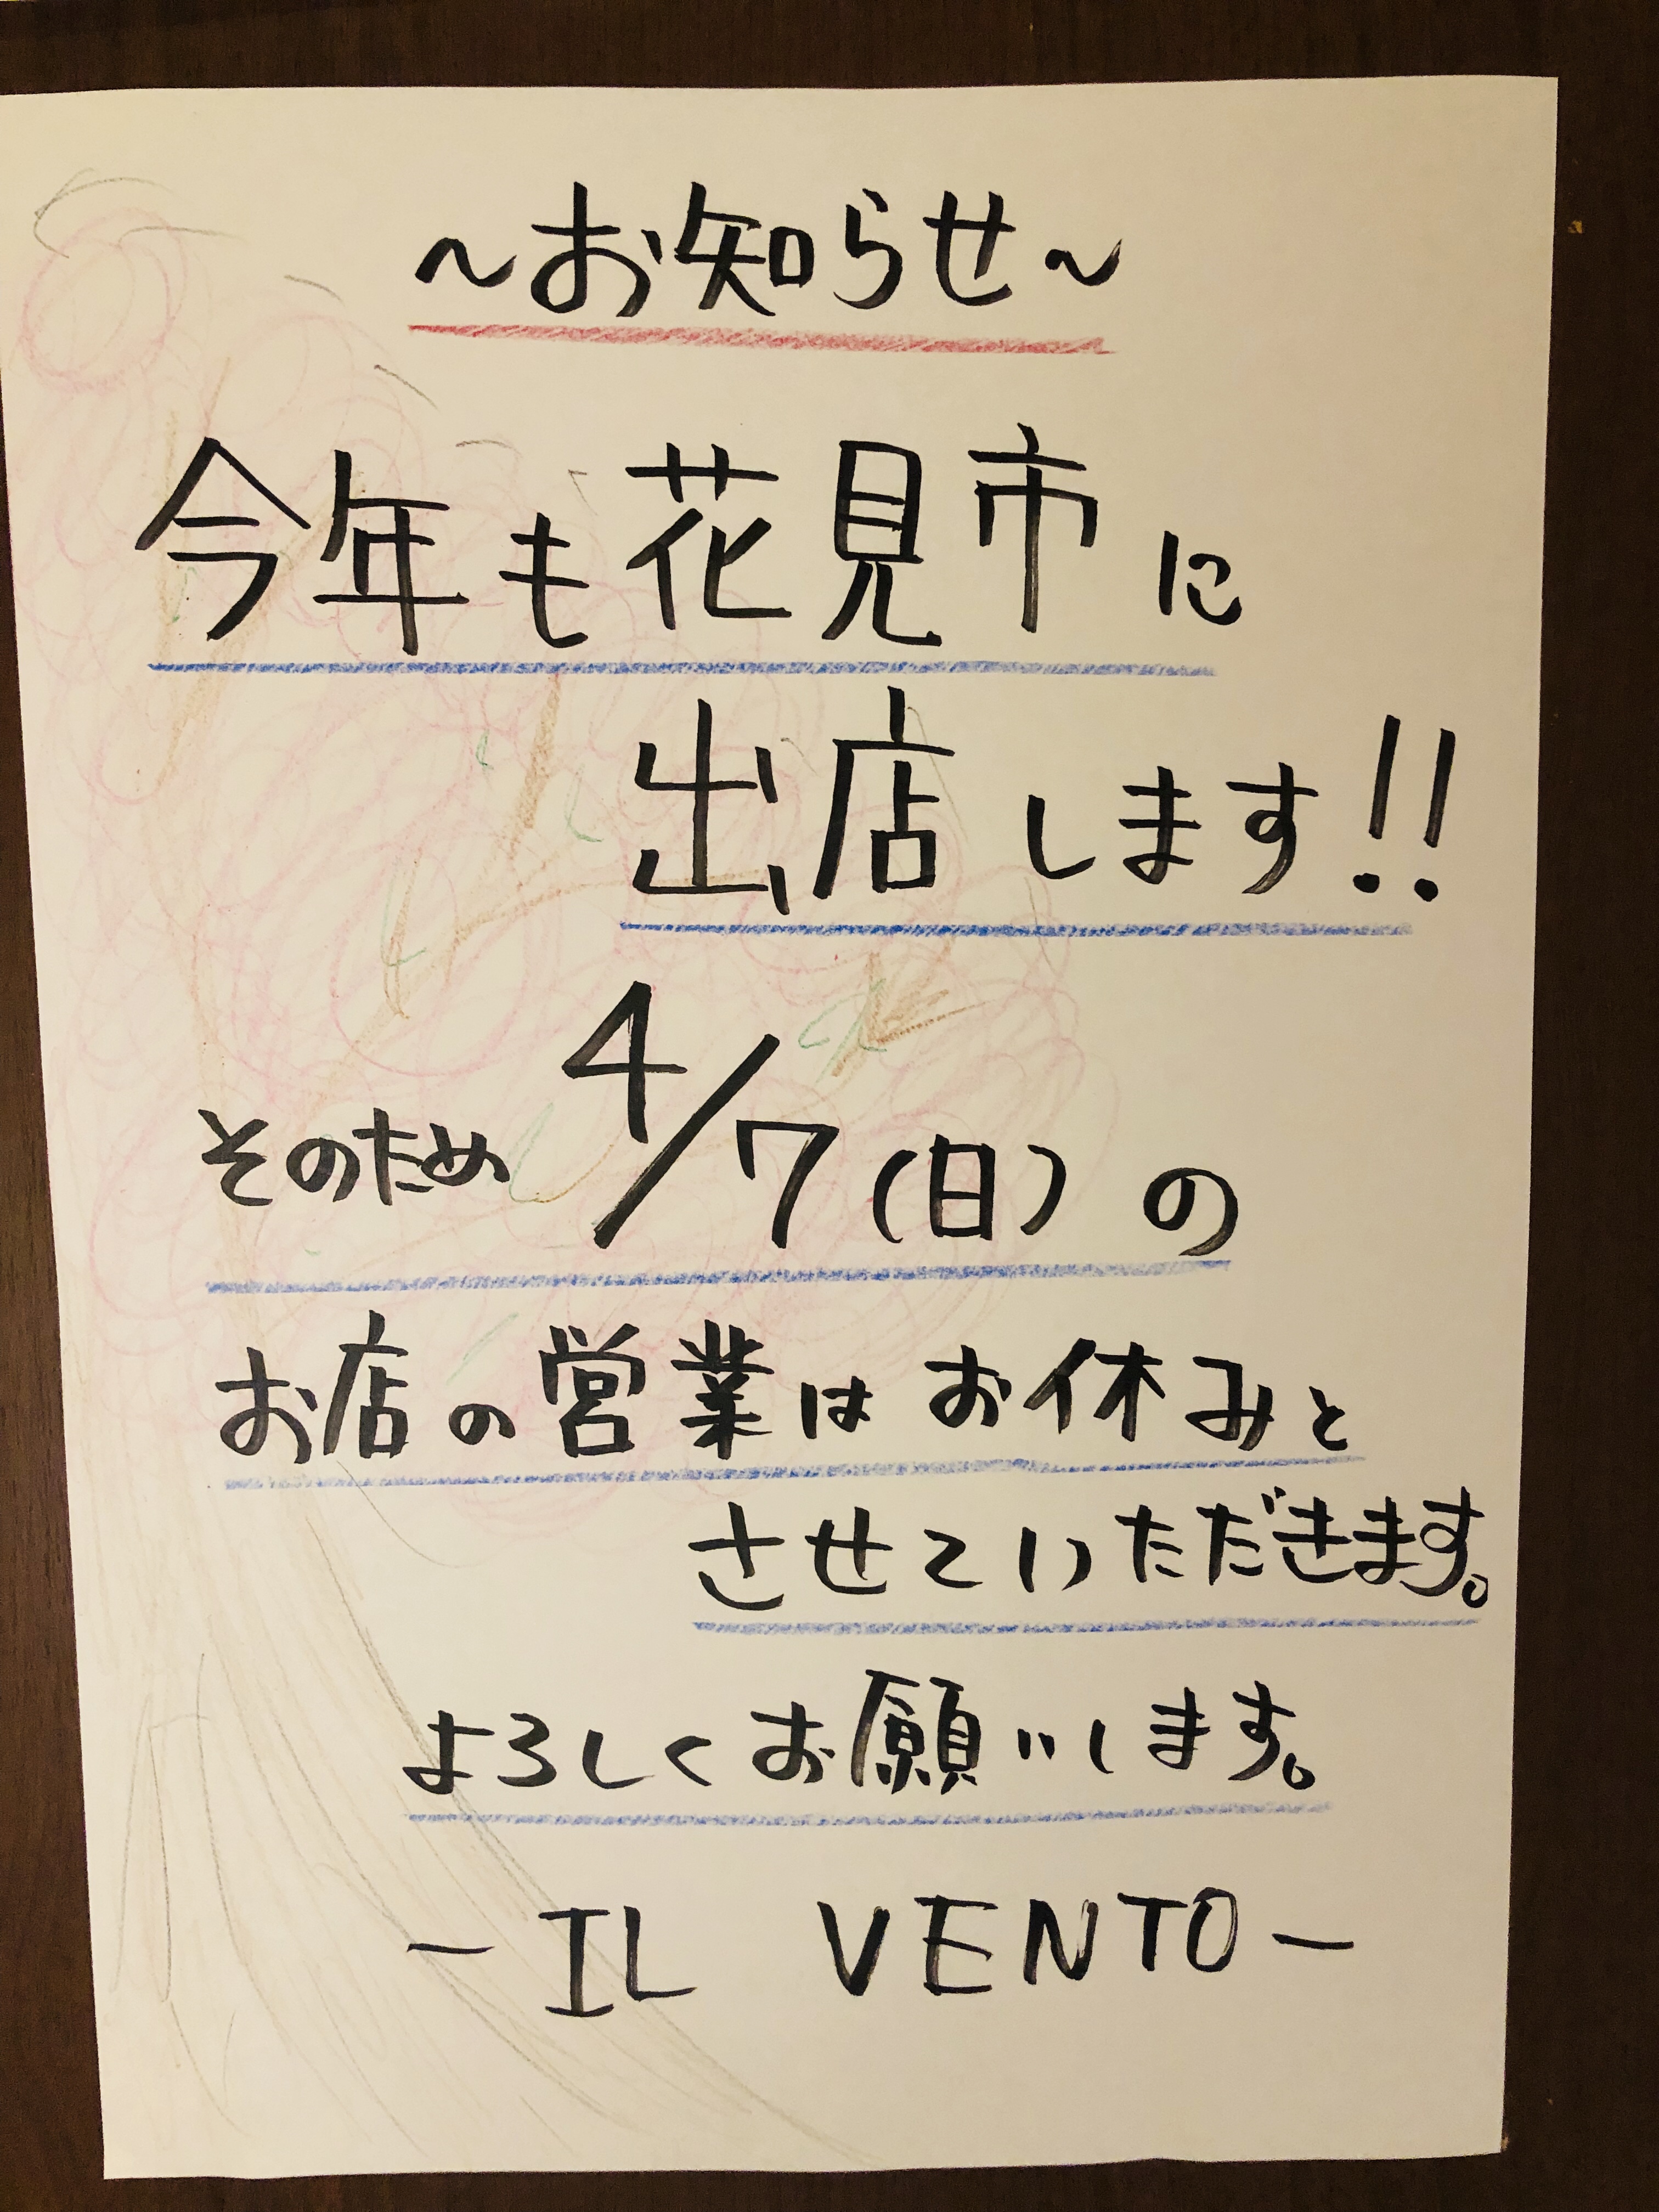 ～お知らせ～
今年も花見市に
出店します!!
そのため4/7(日)の
お店の営業はお休みと
させていただきます。
よろしくお願いします。
－IL VENTO－